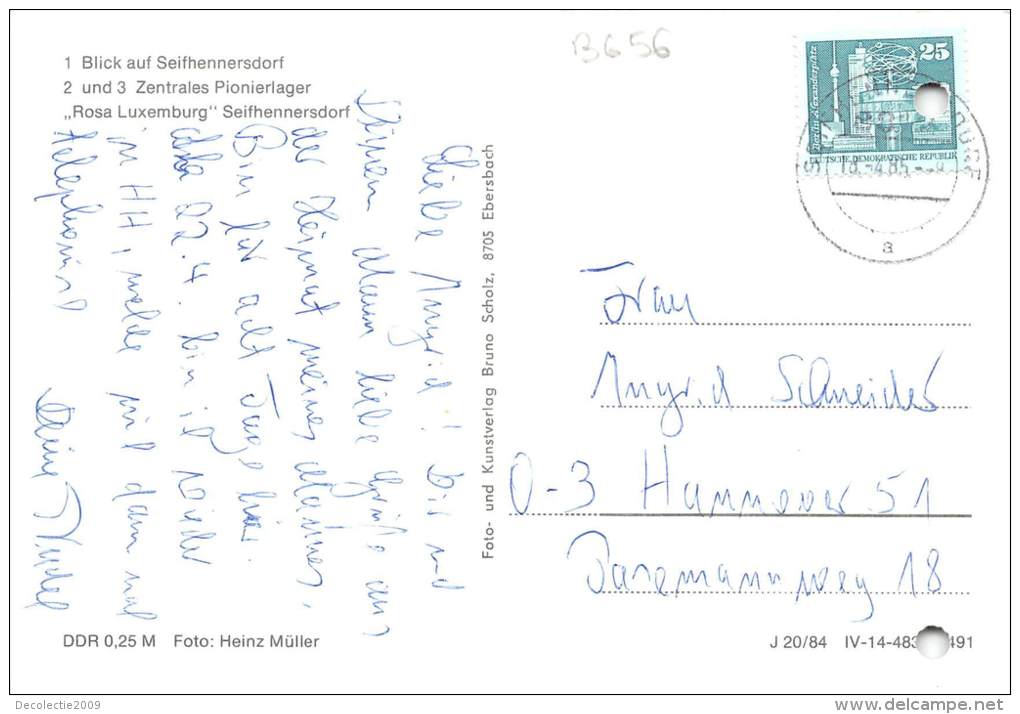 B656
1 Blick auf Seifhennersdorf
2 und 3 Zentrales Pionierlager
„Rosa Luxemburg" Seifhennersdorf
25
Berlin-Alexanderplatz
DEUTSCHE DEMOKRATISCHE REPUBLIK
18.-4.85.-
a
Liebe Ingrid! Dir und
Deinem Mann liebe Grüße aus
der Heimat meines Mannes.
Bin für acht Tage hier.
22.4. bin ich wieder
in HH, melde mich dann mal
telephonisch
Deine
Foto- und Kunstverlag Bruno Scholz, 8705 Ebersbach
Frau
Ingrid Schneider
0-3 Hannover 51
18
DDR 0,25 M Foto: Heinz Müller
J 20/84 IV-14-483 491
Decolectie2009
www.delcampe.net